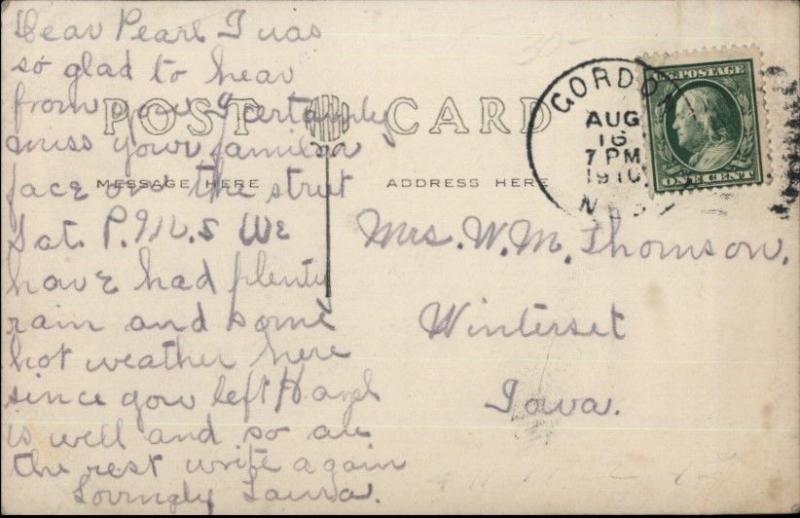 Dear Pearl I was
so glad to hear
from you I certainly
miss your familiar
face on the street
Sat. P.M.s We
have had plenty
rain and some
hot weather here
since you left Hazel
is well and so are
the rest write again
Lovingly Laura.
POST CARD
MESSAGE HERE
ADDRESS HERE
Mrs. W.M. Thomson,
Winterset
Iowa.
GORDON
AUG
16
7 PM
1910
U.S. POSTAGE
ONE CENT